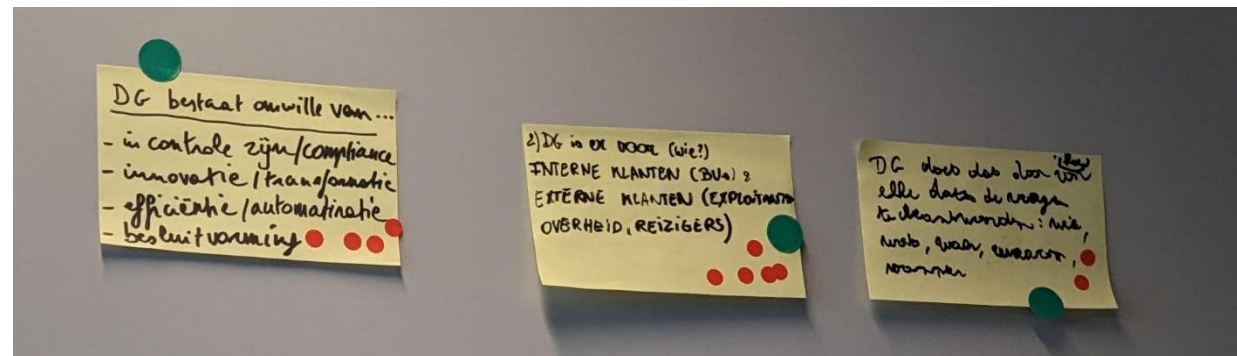 DG bestaat omwille van...
- in controle zijn/compliance
- innovatie/transformatie
- efficiëntie/automatisatie
- besluitvorming
2) DG is er voor (wie?)
INTERNE KLANTEN (BUs) &
EXTERNE KLANTEN (EXPLOITANTEN
OVERHEID, REIZIGERS)
DG does das door
elke data de vragen
te beantwoorden: wie,
wat, waar, waarom,
wanneer